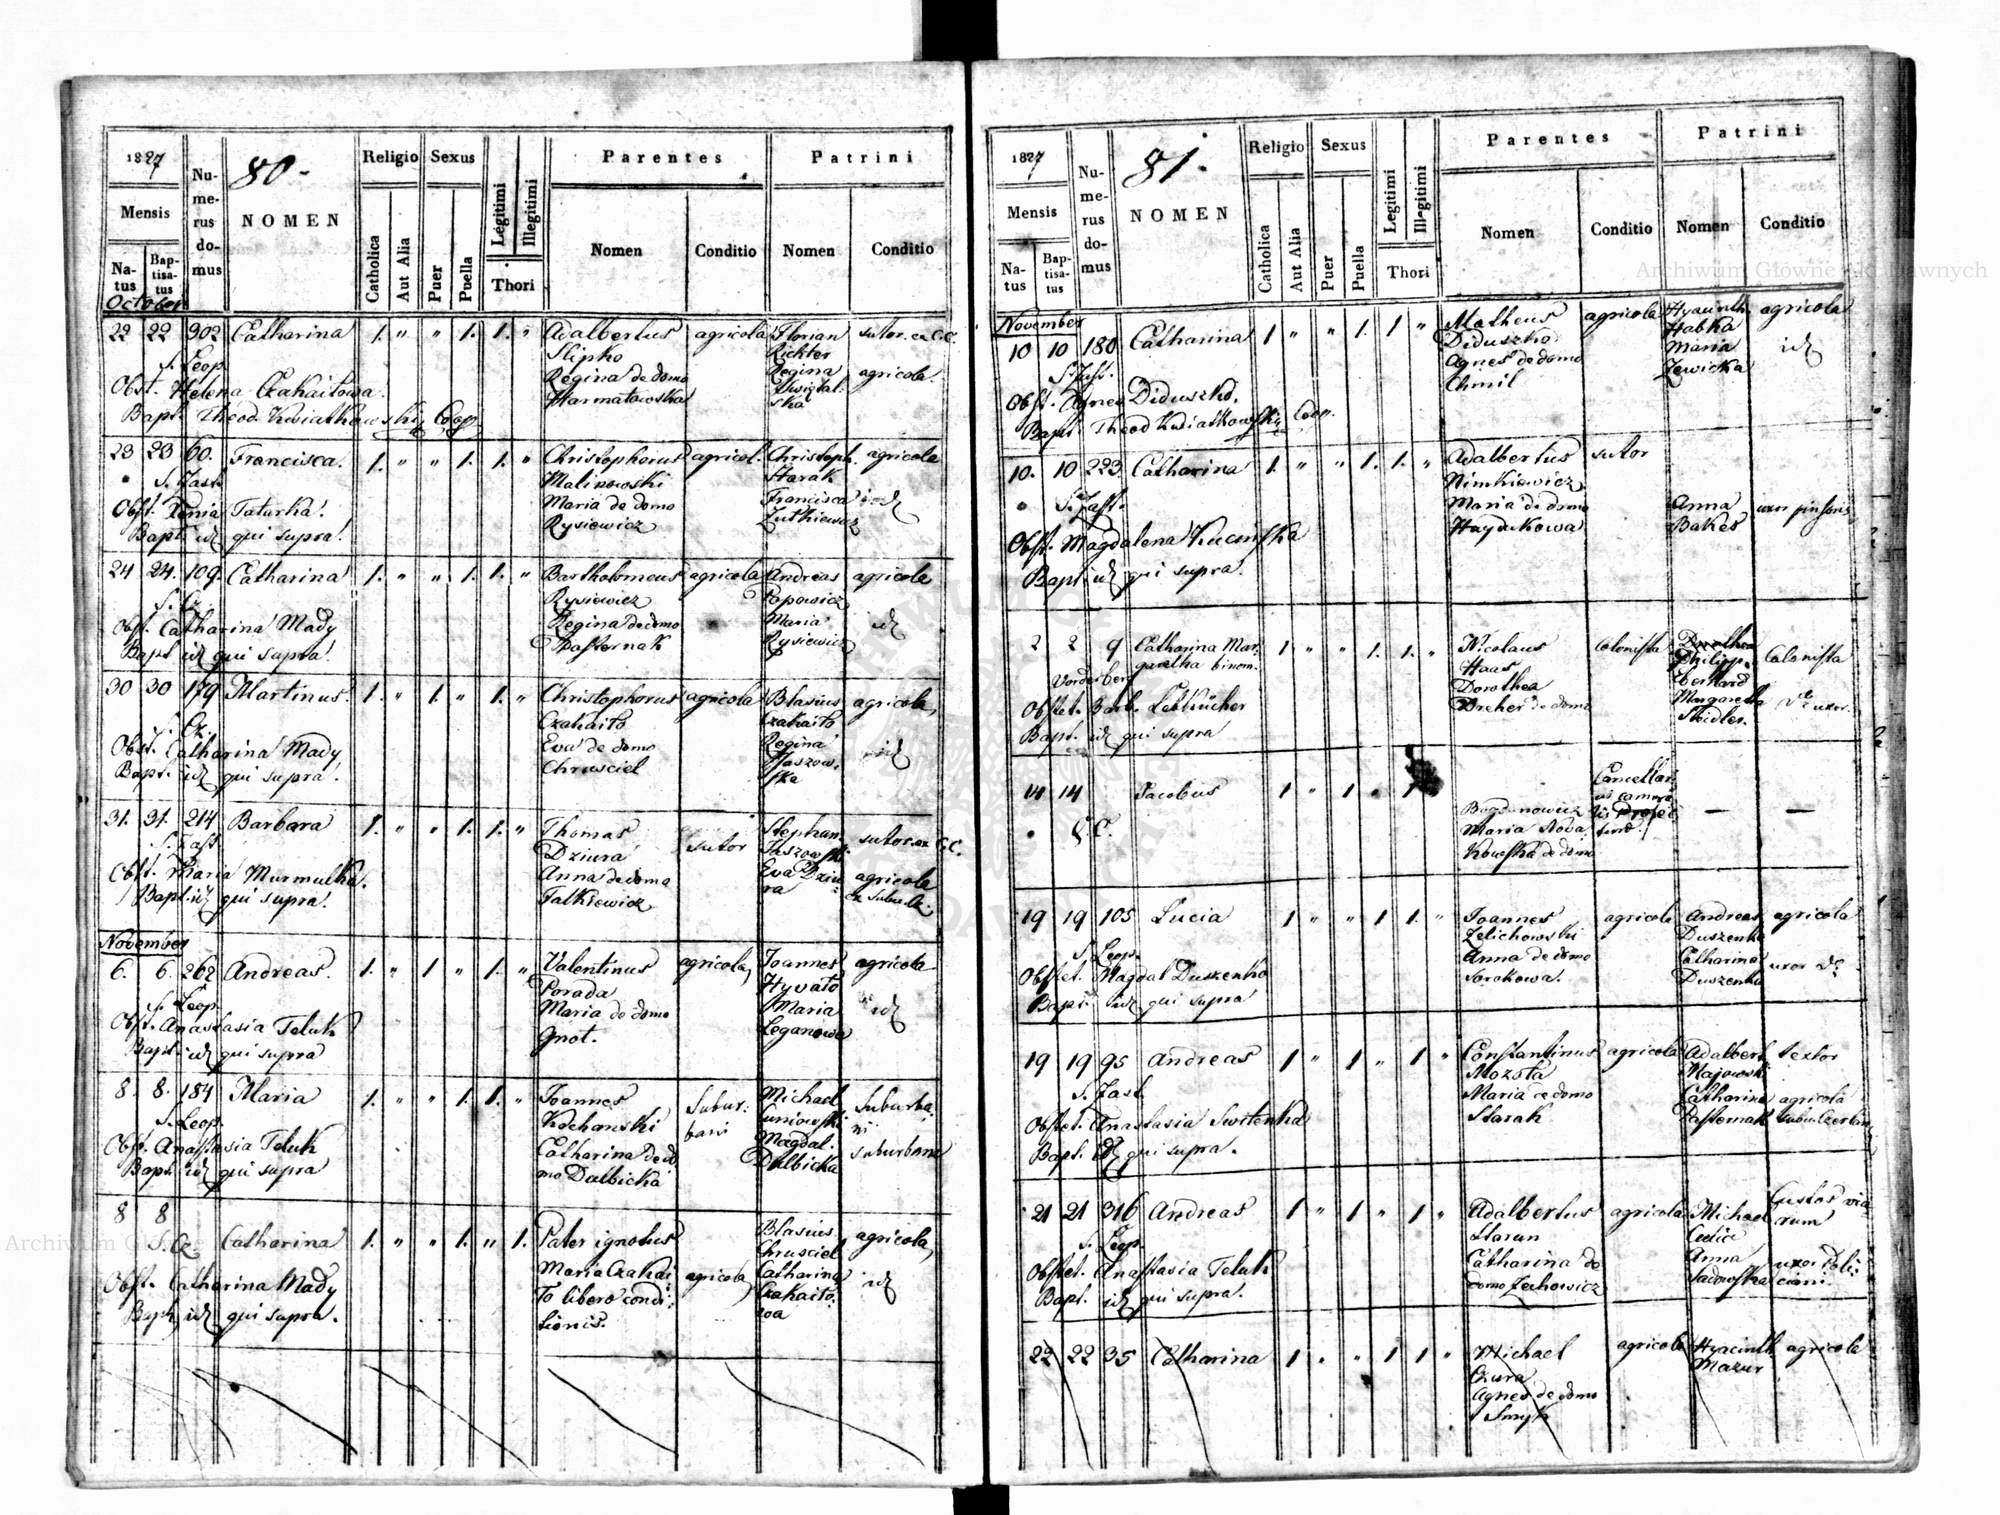 1827
80.
Religio
Sexus
Parentes
Patrini
Mensis
Na-
tus
Bap-
tisa-
tus
Nu-
me-
rus
do-
mus
NOMEN
Catholica
Aut Alia
Puer
Puella
Legitimi
Illegitimi
Thori
Nomen
Conditio
Nomen
Conditio
October
22 22 302 Catharina 1. " " 1. 1. " Adalbertus agricola Florian sutor. ex C.C.
Slipko Richter
S. Leop. Regina de domo Regina agricola.
Obst. Helena Czahaitowa. Harmatowska
Bapt. Theod. Kwiatkowski Coop.
23 23 60. Francisca. 1. " " 1. 1. " Christophorus agricol. Christoph. agricola
S. Zast. Malinowski Harak
Maria de domo Francisca id
Obst. Xenia Taturka. Rysiewicz
Bapt. id qui supra.
24 24. 109. Catharina 1. " " 1. 1. " Bartholomeus agricola Andreas agricola
S. Cz. Rysiewicz Popowicz
Obst. Catharina Mady Regina de domo Maria id
Bapt id qui supra. Pasternak Rysiewicz
30 30 179 Martinus. 1. " 1. " 1. " Christophorus agricola Blasius agricola
S. Cz. Czahaito Czahaito
Obst. Catharina Mady Eva de domo Regina id
Bapt. id qui supra. Chrusciel
31. 31. 214 Barbara 1. " " 1. 1. " Thomas sutor Stephan. sutor. ex C.C.
S. Zast Dziura
Obst. Maria Murmulka. Anna de domo Eva Dziu- agricola
Bapt. id qui supra. Falkiewicz ra
November
6. 6. 262 Andreas. 1. " 1 " 1. " Valentinus agricola Joannes agricola
S. Leop. Porada Hyvato
Obst. Anastasia Teluk Maria de domo Maria id
Bapt. id qui supra Gnot. Leganowa
8. 8. 184 Maria 1. " " 1. 1. " Joannes Subur- Michael Suburba-
S. Leop. Kochanski bani ni
Obst. Anastasia Teluk Catharina de do Magdal. suburbana
Bapt. id qui supra mo Dulbicka Dulbicka
8 8
S. Cz. Catharina 1. " " 1. " 1. Pater ignotus Blasius agricola
Maria Czahai agricola Chrusciel
Obst. Catharina Mady to libero condi- Catharina id
Bapt. id qui supra. tionis. Czahaito-
wa
1827
81.
Religio
Sexus
Parentes
Patrini
Mensis
Na-
tus
Bap-
tisa-
tus
Nu-
me-
rus
do-
mus
NOMEN
Catholica
Aut Alia
Puer
Puella
Legitimi
Illegitimi
Thori
Nomen
Conditio
Nomen
Conditio
November
10 10 180 Catharina 1 " " 1. 1 " Matheus agricola Hyacinth agricola
S. Zast. Diduszko Habka
Agnes de domo Maria id
Obst. Agnes Diduszko. Chmil Lewicka
Bapt. Theod Kwiatkowski Coop.
10. 10 223 Catharina 1. " " 1. 1. " Adalbertus sutor
S. Zast. Nimkiewicz
Maria de domo Anna uxor
Haydukowa Bakes
Obst. Magdalena Kucinska
Bapt. id qui supra.
2 2 9 Catharina Mar- 1 " " 1. 1. " Nicolaus Colonista Philipp Colonista
garetha binom. Haas Eberhard
Vorderberg Dorothea Margaretha uxor.
Obstet. Barb. Dreher de domo
Bapt. id qui supra
14 14 Jacobus 1 " 1 " 1 Bogdanowicz — —
S. C. Maria Nowa
kowska de domo
19 19 105 Lucia 1 " " 1 1. " Joannes agricola Andreas agricola
S. Leop. Zelichowski Duszenko
Obstet. Magdal Duszenko Anna de domo Catharina uxor
Bapt. id qui supra Sorokowa. Duszenko
19 19 95 Andreas 1 " 1 " 1 " Constantinus agricola Adalbert textor
S. Zast. Mozota Majowski
Obstet. Anastasia Switenka Maria de domo Catharina agricola
Bapt. id qui supra. Starak Pasternak
21 21 316 Andreas 1 " 1 " 1 " Adalbertus agricola Michael Custos via-
S. Leop. Staran rum
Obstet. Anastasia Teluk Catharina de Anna uxor
Bapt. id qui supra. domo Zechowicz Sadowska
22 22 35 Catharina 1 " " 1 1 " Michael agricola Hyacinth agricola
Czura Mazur
Agnes de domo
Smyk
Archiwum Główne Akt Dawnych